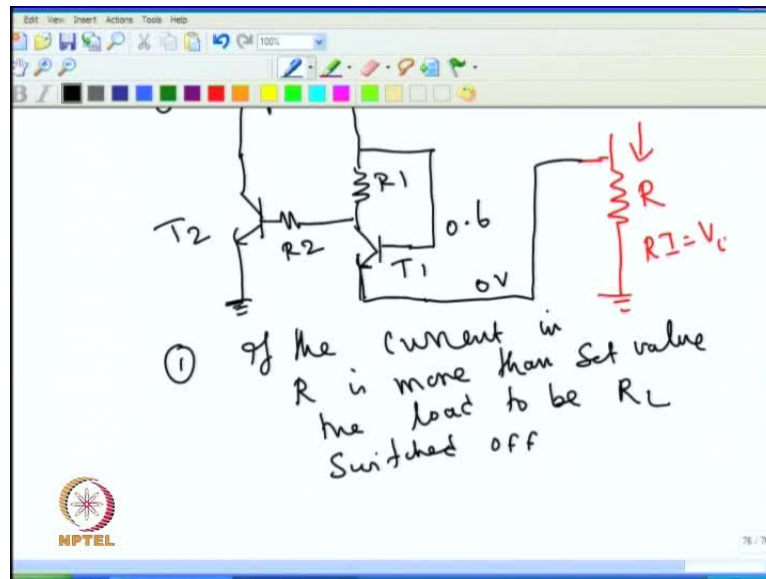 Edit View Insert Actions Tools Help
100%
B I
R1
T2
R2
T1
0.6
0V
R
RI = V
① If the current in
R is more than Set value
the load to be RL
Switched off
NPTEL